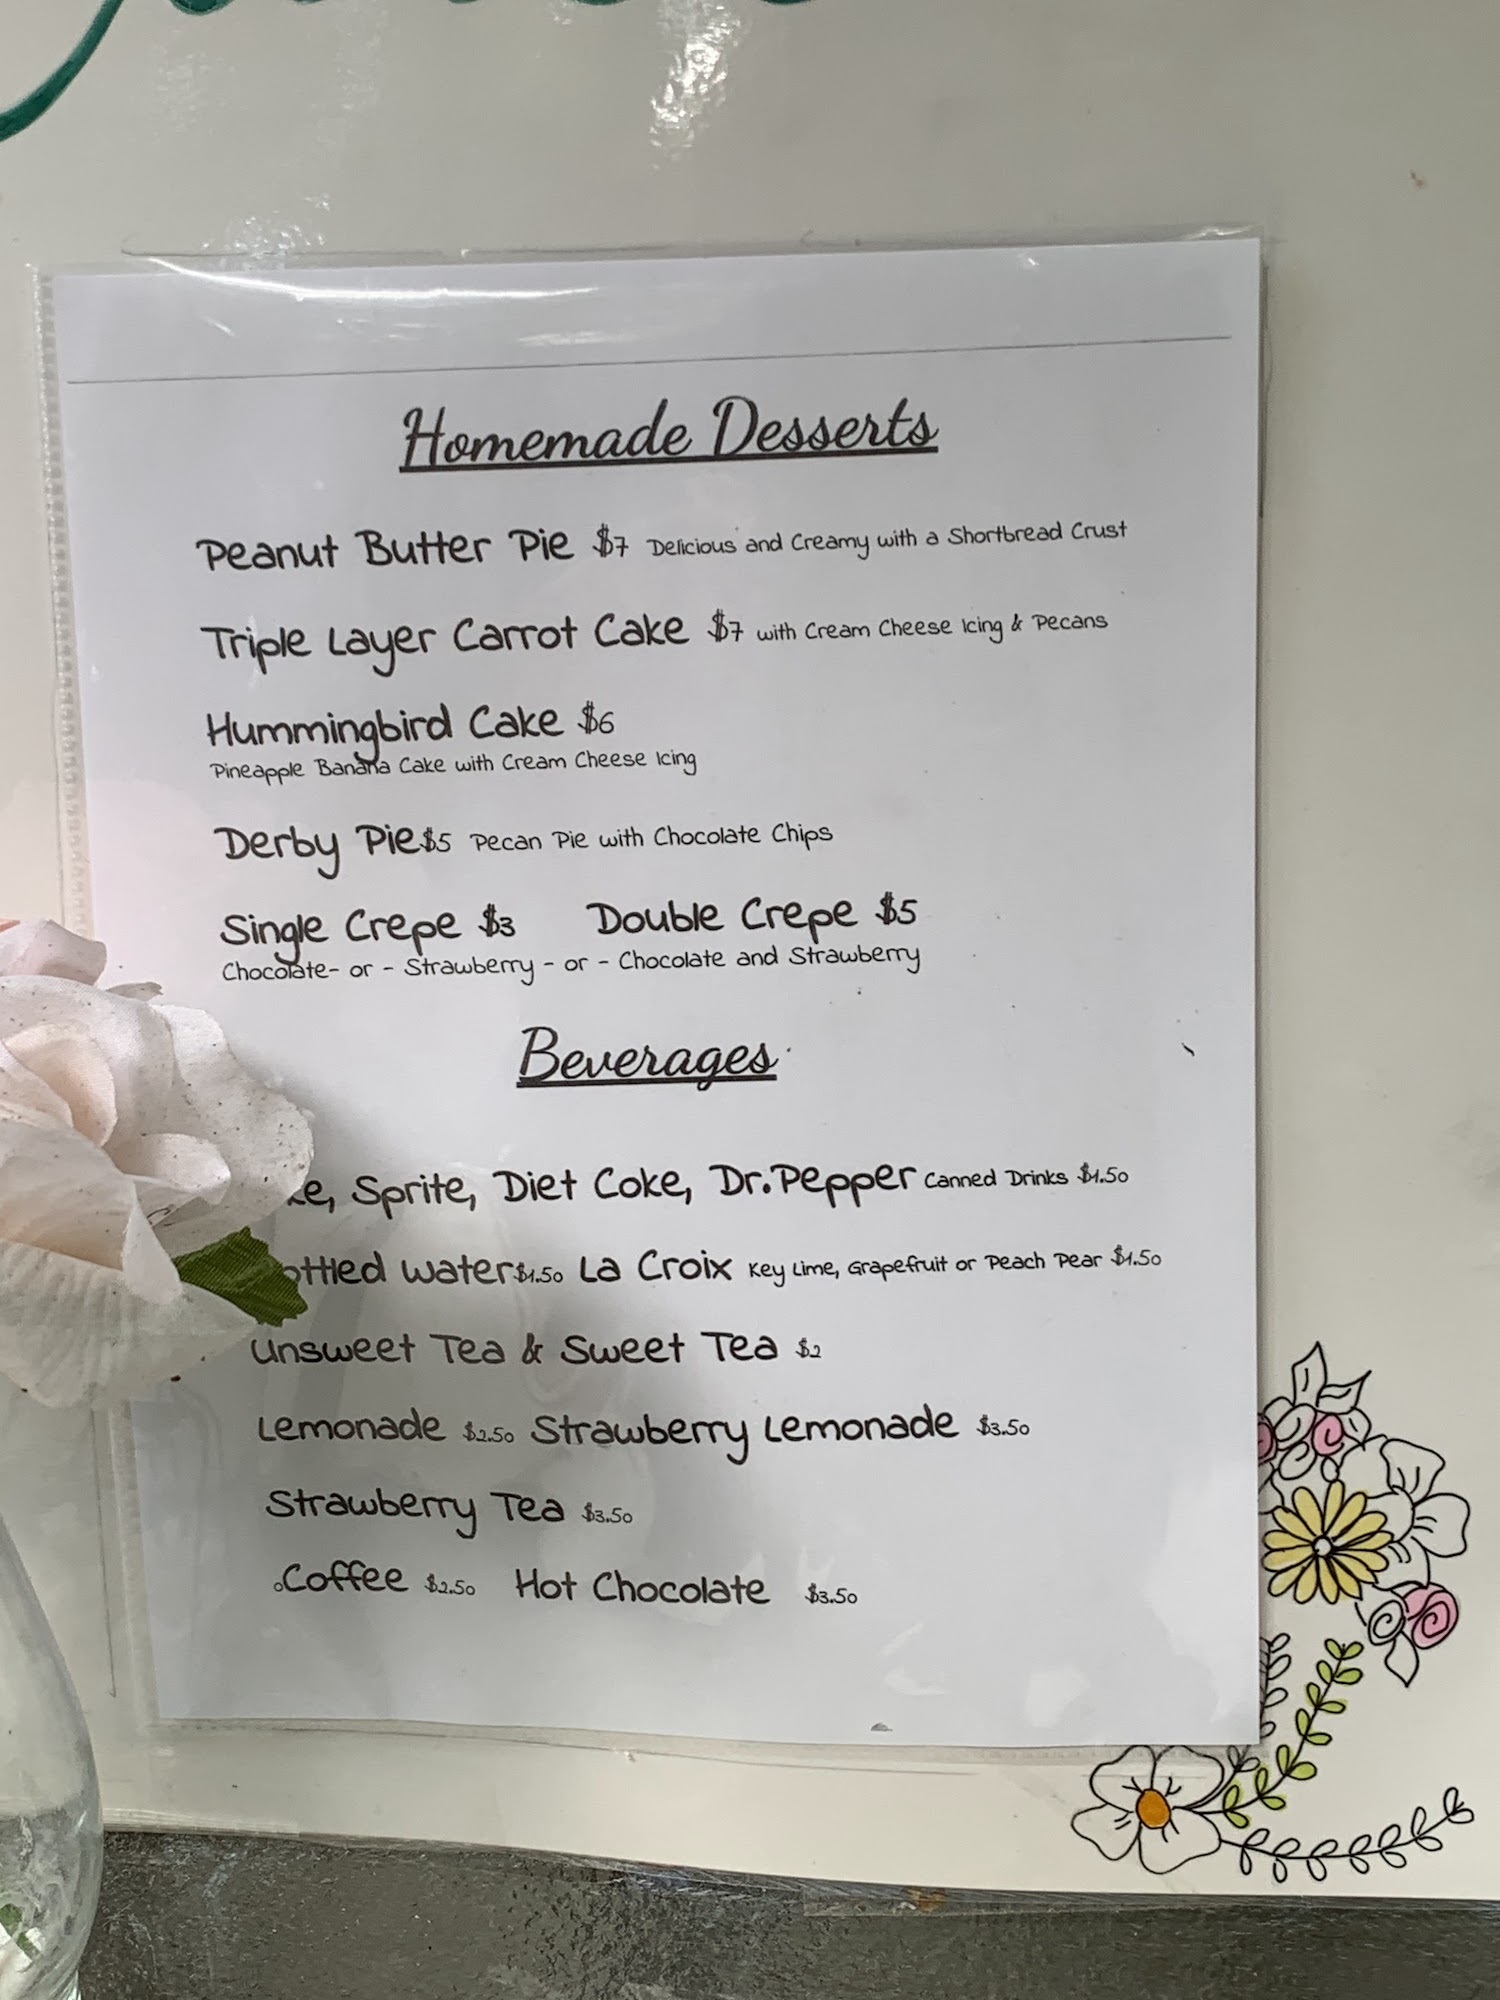 Homemade Desserts
Peanut Butter Pie $7 Delicious and Creamy with a Shortbread Crust
Triple Layer Carrot Cake $7 with Cream Cheese Icing & Pecans
Hummingbird Cake $6
Pineapple Banana Cake with Cream Cheese Icing
Derby Pie $5 Pecan Pie with Chocolate Chips
Single Crepe $3 Double Crepe $5
Chocolate- or - Strawberry - or - Chocolate and Strawberry
Beverages
Sprite, Diet Coke, Dr.Pepper Canned Drinks $1.50
water $1.50 La Croix Key Lime, Grapefruit or Peach Pear $1.50
Unsweet Tea & Sweet Tea $2
Lemonade $2.50 Strawberry Lemonade $3.50
Strawberry Tea $3.50
Coffee $2.50 Hot Chocolate $3.50